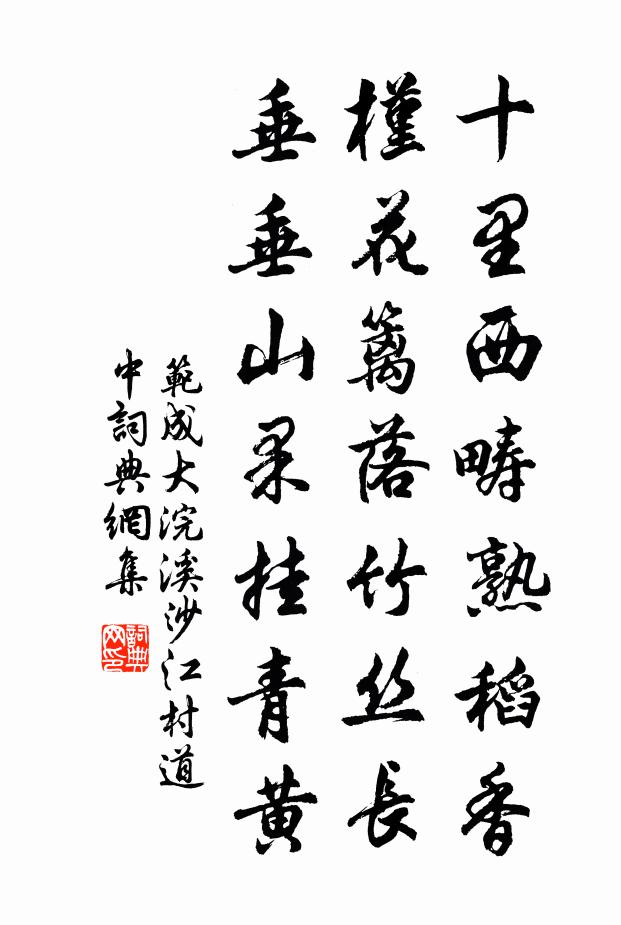 十里西疇熟稻香
槿花籬落竹丝長
垂垂山果挂青黃
範成大浣溪沙江村道
中詞典網集
詞典網印